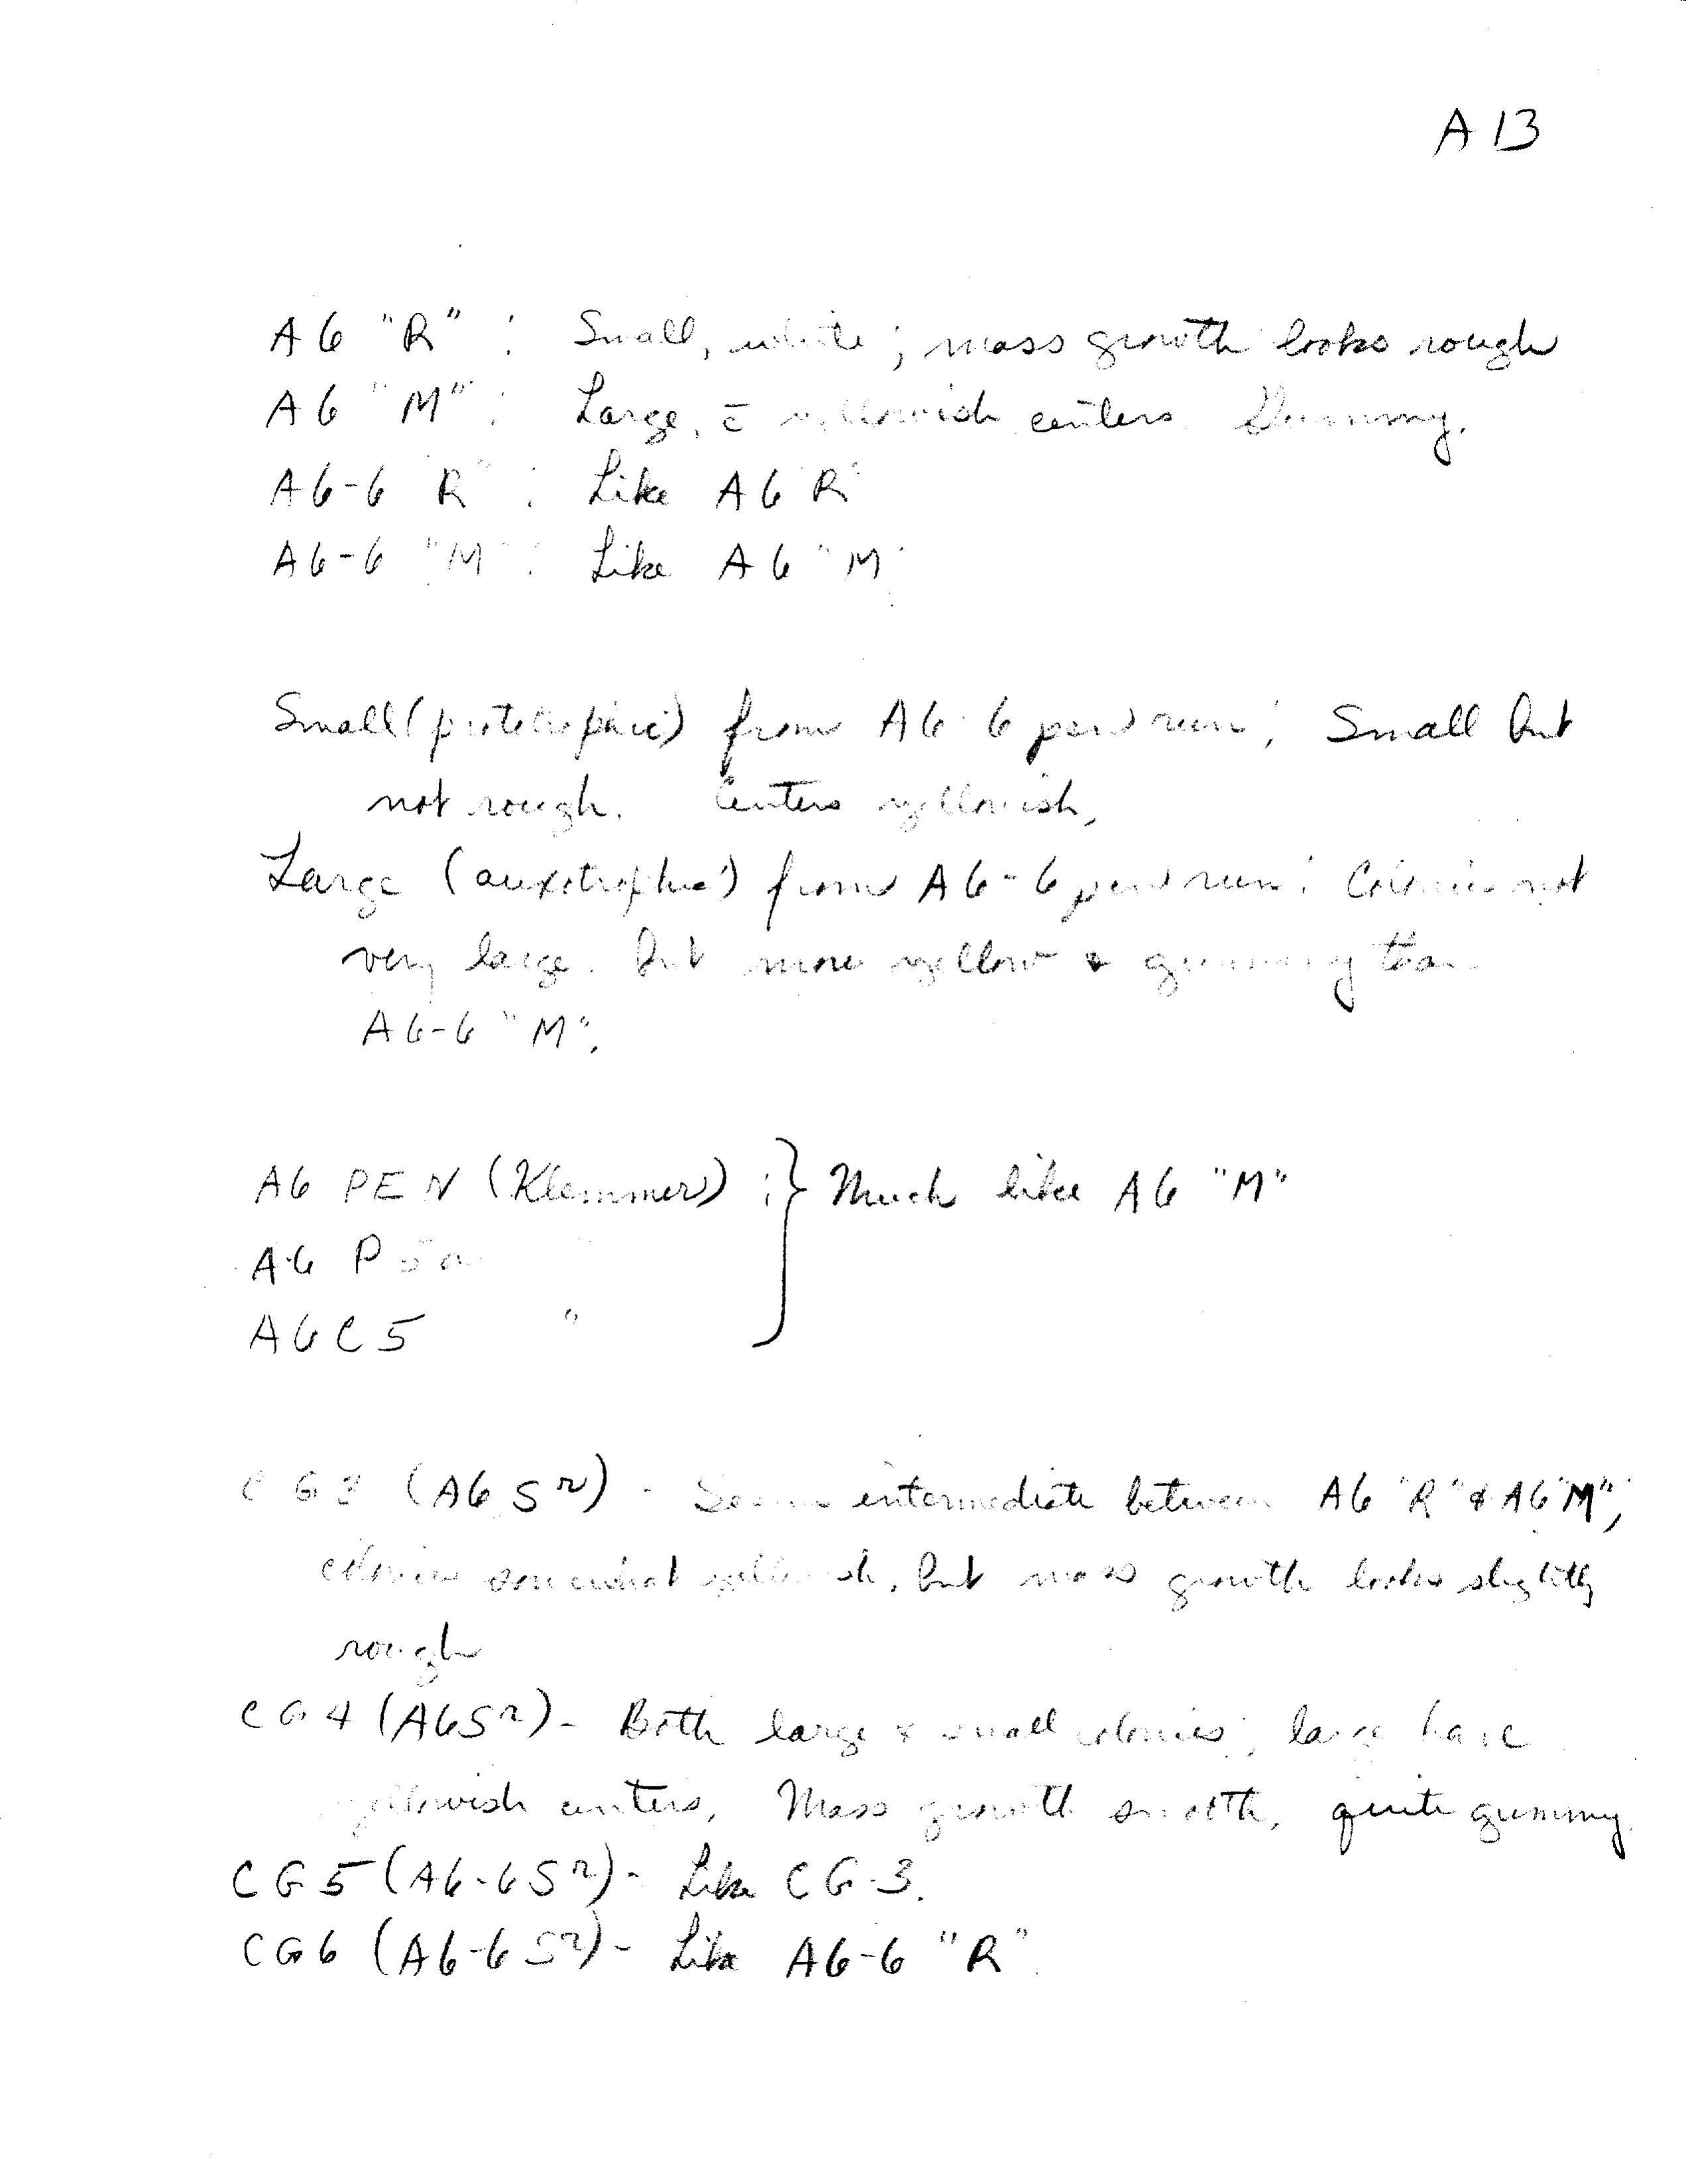 A 13
A6 "R" : Small, white; mass growth looks rough
A6 "M" : Large, c̄ yellowish centers. Gummy.
A6-6 R" : Like A6 R"
A6-6 "M" : Like A6 "M"
Small (prototrophic) from A6-6 pen run; Small but
not rough. Centers yellowish,
Large (auxotrophic) from A6-6 pen run: Colonies not
very large. But more yellow & gummy than
A6-6 "M".
A6 PEN (Klemmer) :} Much like A6 "M"
A6 P
A6C5 "
CG3 (A6 Sʳ) - Seems intermediate between A6 "R" & A6 "M",
colonies somewhat yellowish, but mass growth looks slightly
rough
CG4 (A6Sʳ) - Both large & small colonies; large have
yellowish centers. Mass growth smooth, quite gummy.
CG5 (A6-6Sʳ) - Like CG-3.
CG6 (A6-6 Sʳ) - Like A6-6 "R".